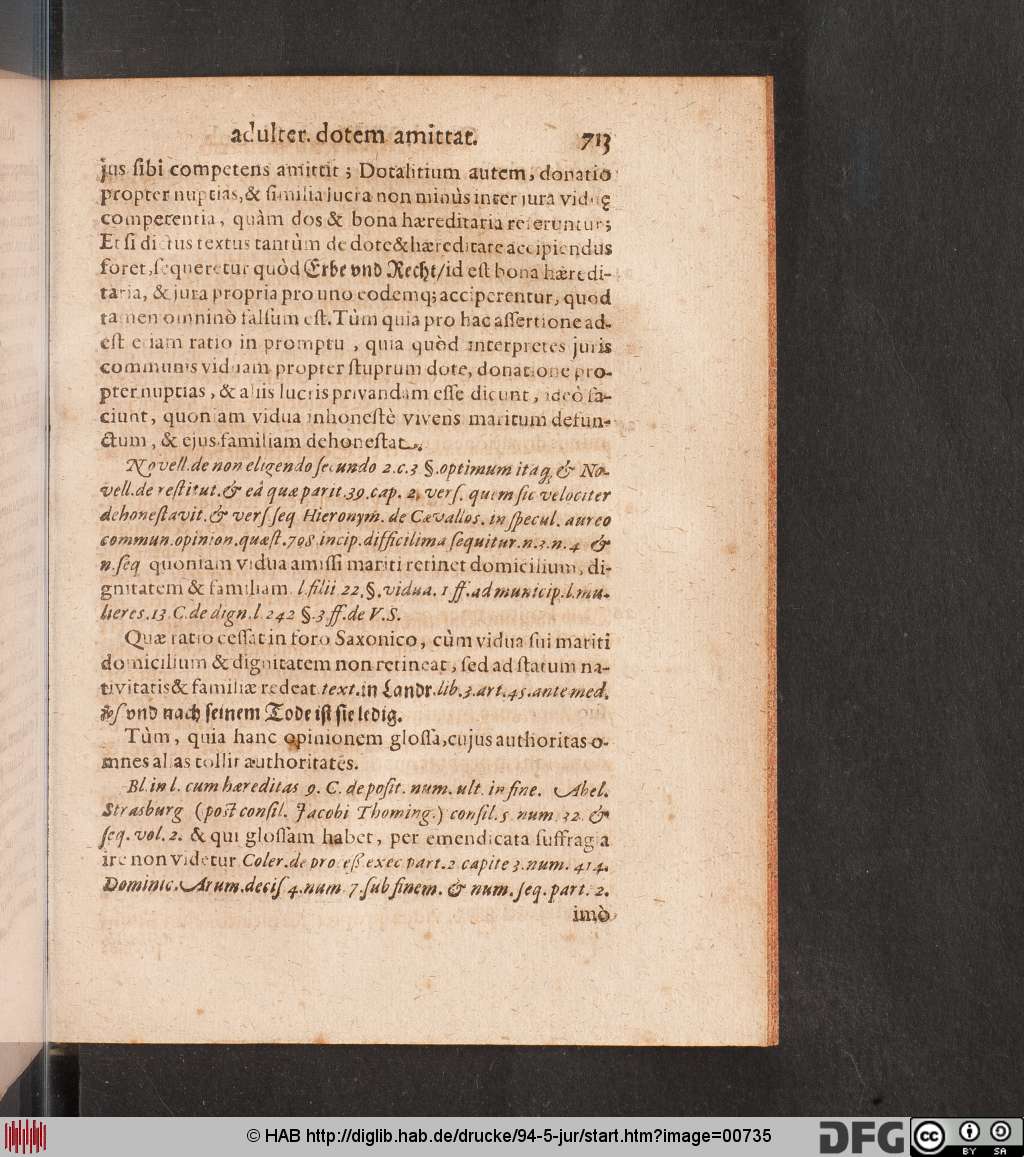 adulter. dotem amittat. 713
jus sibi competens amittit ; Dotalitium autem, donatio
propter nuptias, & similia lucra non minùs inter jura viduę
competentia, quàm dos & bona hæreditaria referuntur;
Et si dictus textus tantùm de dote & hæreditate accipiendus
foret, sequeretur quòd Erbe vnd Recht/ id est bona hæredi-
taria, & jura propria pro uno eodemq; acciperentur, quod
tamen omninò falsum est. Tùm quia pro hac assertione ad-
est etiam ratio in promptu , quia quòd interpretes juris
communis viduam propter stuprum dote, donatione pro-
pter nuptias, & aliis lucris privandam esse dicunt, ideò fa-
ciunt, quoniam vidua inhonestè vivens maritum defun-
ctum, & ejus familiam dehonestat.
Novell. de non eligendo secundo 2. c. 3 §. optimum itaq; & No-
vell. de restitut. & eâ quæ parit. 39. cap. 2. vers. quem sic velociter
dehonestavit. & vers. seq Hieronym. de Cævallos. in specul. aureo
commun. opinion. quæst. 798. incip. difficilima sequitur. n. 3. n. 4 &
n. seq quoniam vidua amissi mariti retinet domicilium, di-
gnitatem & familiam. l. filii 22. §. vidua. 1 ff. ad municip. l. mu-
lieres. 13 C. de dign. l. 242 §. 3 ff. de V. S.
Quæ ratio cessat in foro Saxonico, cùm vidua sui mariti
domicilium & dignitatem non retineat, sed ad statum na-
tivitatis & familiæ redeat. text. in Landr. lib. 3. art. 45. ante med.
vs vnd nach seinem Tode ist sie ledig.
Tùm, quia hanc opinionem glossa, cujus authoritas o-
mnes alias tollit authoritates.
Bl. in l. cum hæreditas 9. C. deposit. num. ult. in fine. Abel.
Strasburg (post consil. Jacobi Thoming.) consil. 5. num. 32. &
seq. vol. 2. & qui glossam habet, per emendicata suffragia
ire non videtur Coler. de proceß. exec part. 2. capite 3. num. 414.
Dominic. Arum. decis. 4. num. 7. sub finem. & num. seq. part. 2.
imò
© HAB http://diglib.hab.de/drucke/94-5-jur/start.htm?image=00735
DFG cc BY SA